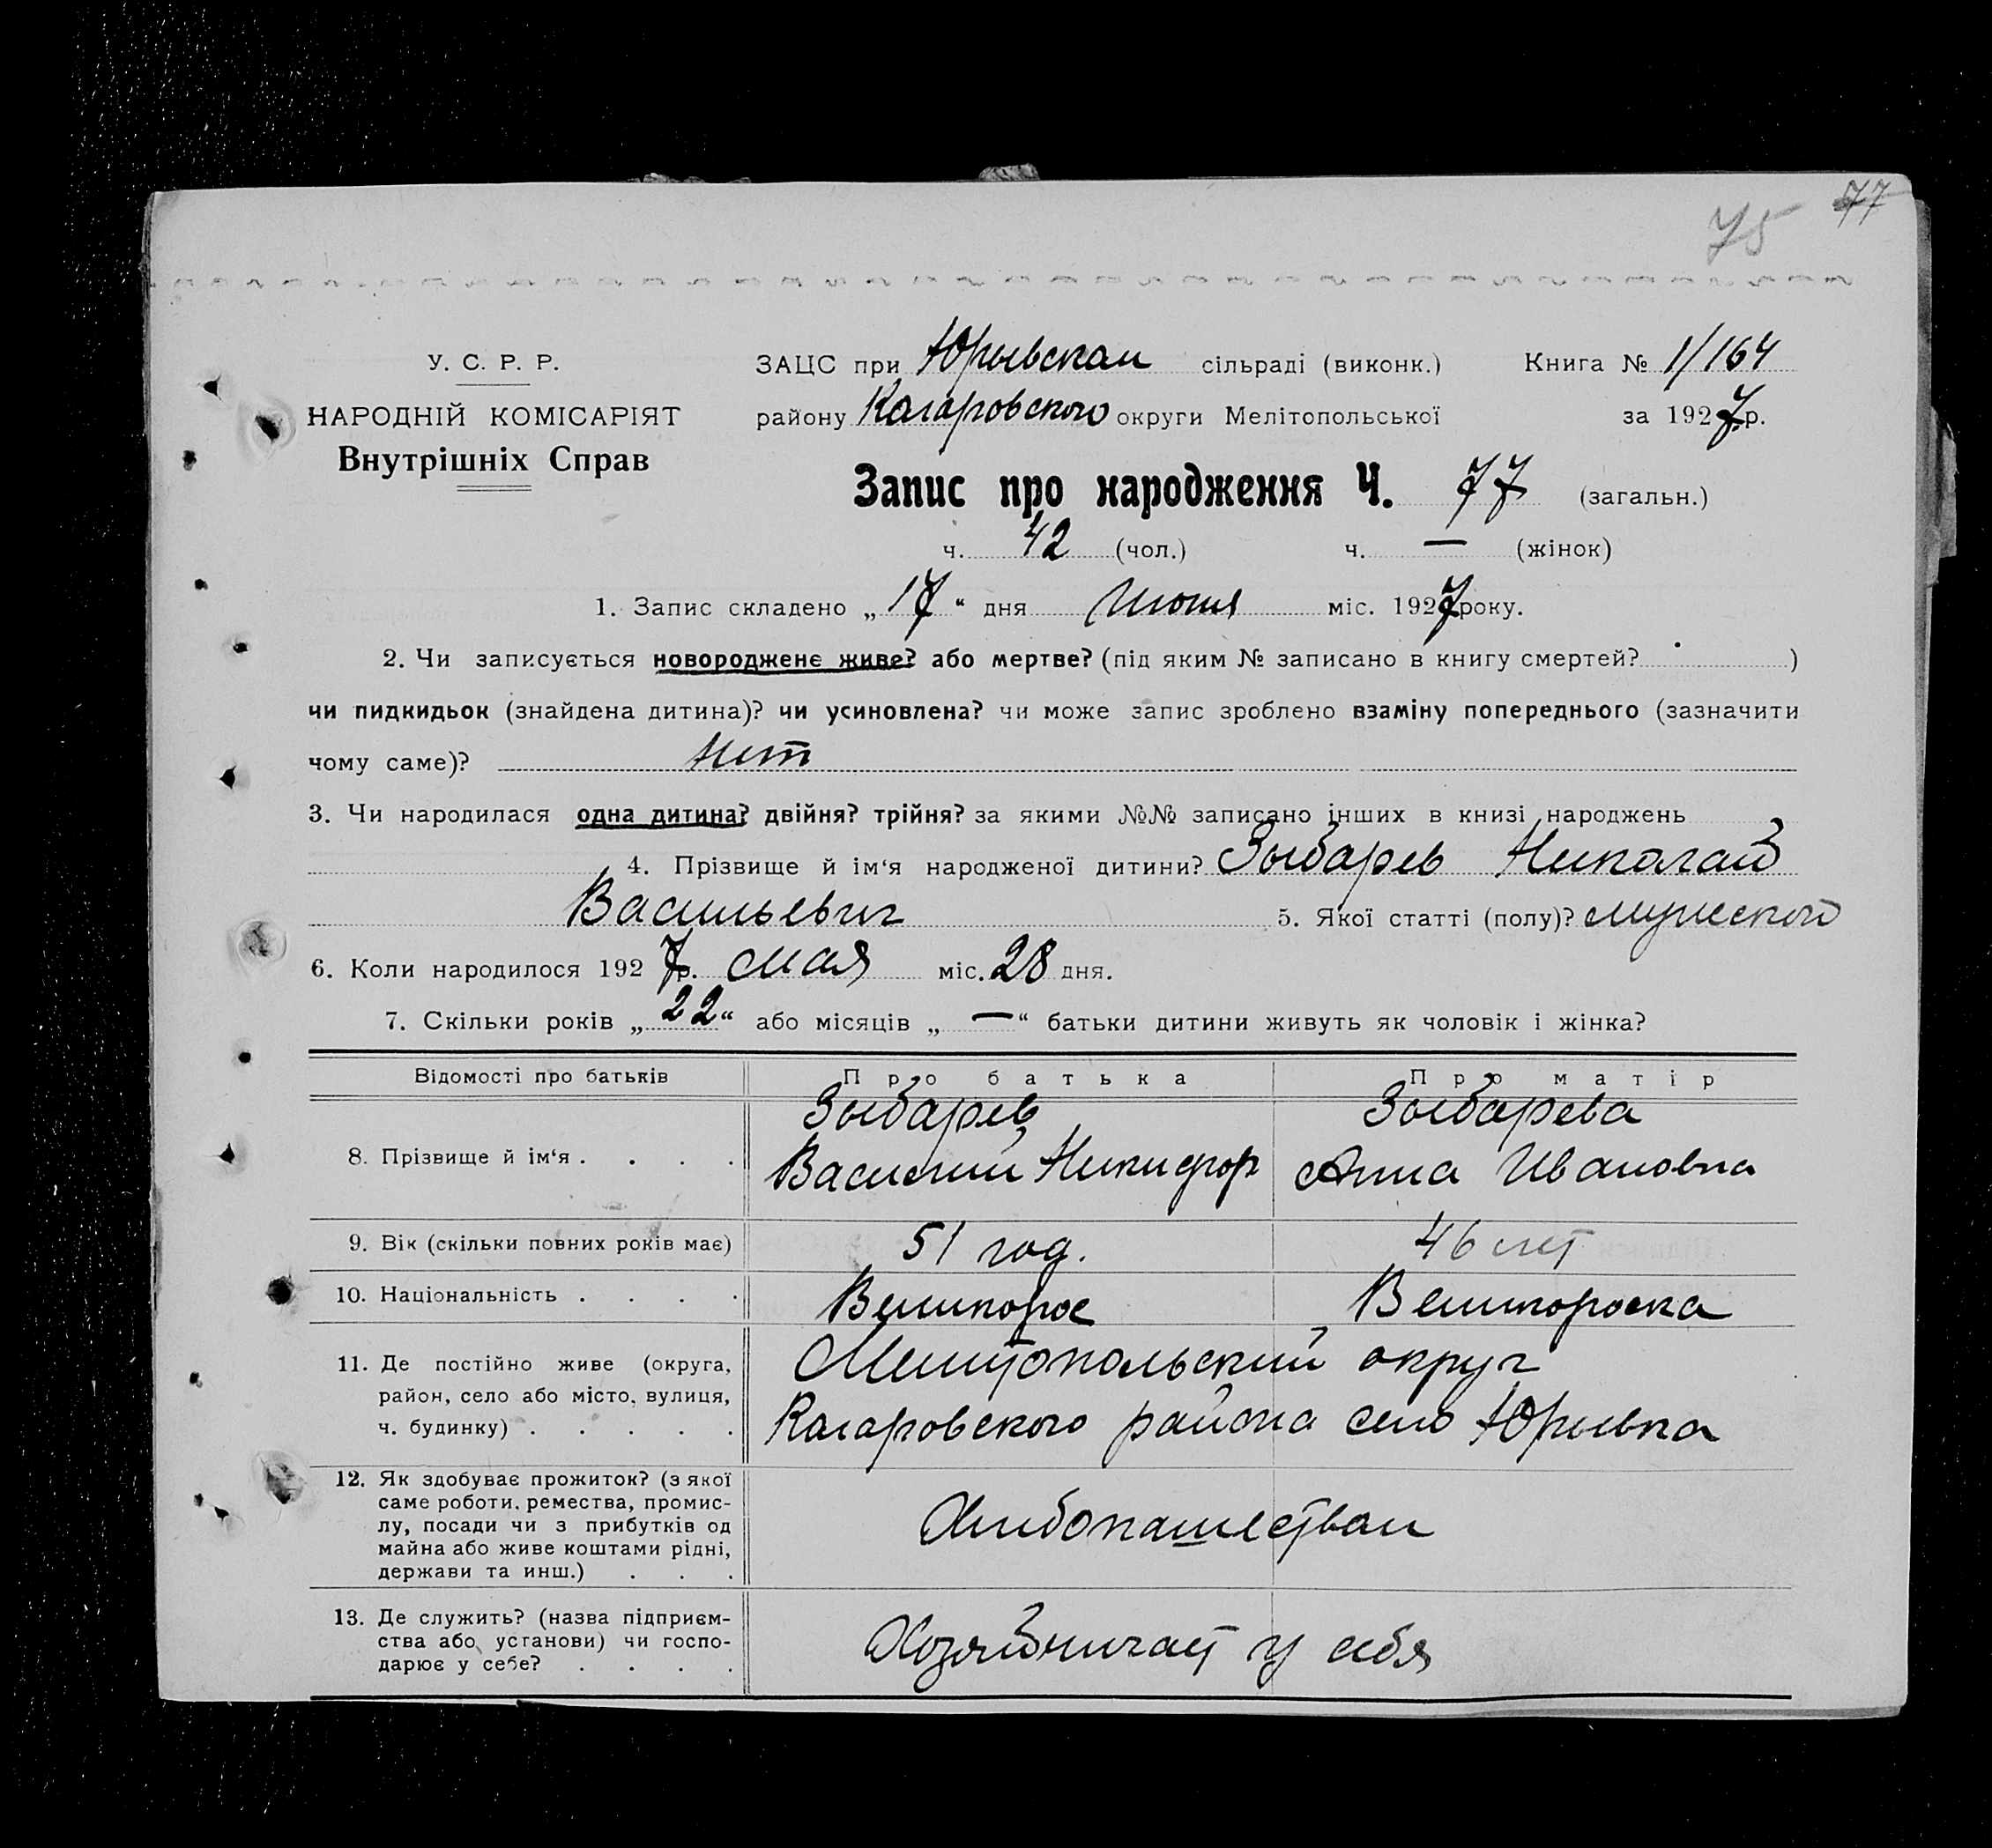 75 77
У. С. Р. Р.
НАРОДНІЙ КОМІСАРІЯТ
Внутрішніх Справ
ЗАЦС при Юрьевском сільраді (виконк.) Книга № 1/164
району Кагаровского округи Мелітопольської за 1927 р.
Запис про народження Ч. 77 (загальн.)
ч. 42 (чол.) ч. — (жінок)
1. Запис складено „17“ дня Июня міс. 1927 року.
2. Чи записується новороджене живе? або мертве? (під яким № записано в книгу смертей? )
чи пидкидьок (знайдена дитина)? чи усиновлена? чи може запис зроблено взаміну попереднього (зазначити
чому саме)? Нет
3. Чи народилася одна дитина? двійня? трійня? за якими №№ записано інших в книзі народжень
4. Прізвище й ім‘я народженої дитини? Зыбарев Николай
Васильевич 5. Якої статті (полу)? мужеского
6. Коли народилося 1927 р. мая міс. 28 дня.
7. Скільки років „22“ або місяців „—“ батьки дитини живуть як чоловік і жінка?
Відомості про батьків Про батька Про матір
8. Прізвище й ім‘я . . . .
Зыбарев
Василий Никифор
Зыбарева
Анна Ивановна
9. Вік (скільки повних років має) 51 год. 46 лет
10. Національність . . . . Великорос Великороска
11. Де постійно живе (округа,
район, село або місто, вулиця,
ч. будинку) . . . . .
Мелитопольский округ
Кагаровского района село Юрьевка
12. Як здобуває прожиток? (з якої
саме роботи, ремества, промис-
лу, посади чи з прибутків од
майна або живе коштами рідні,
держави та инш.) . . .
Хлебопашеством
13. Де служить? (назва підприєм-
ства або установи) чи госпо-
дарює у себе? . . . .
Хозяйничает у себя